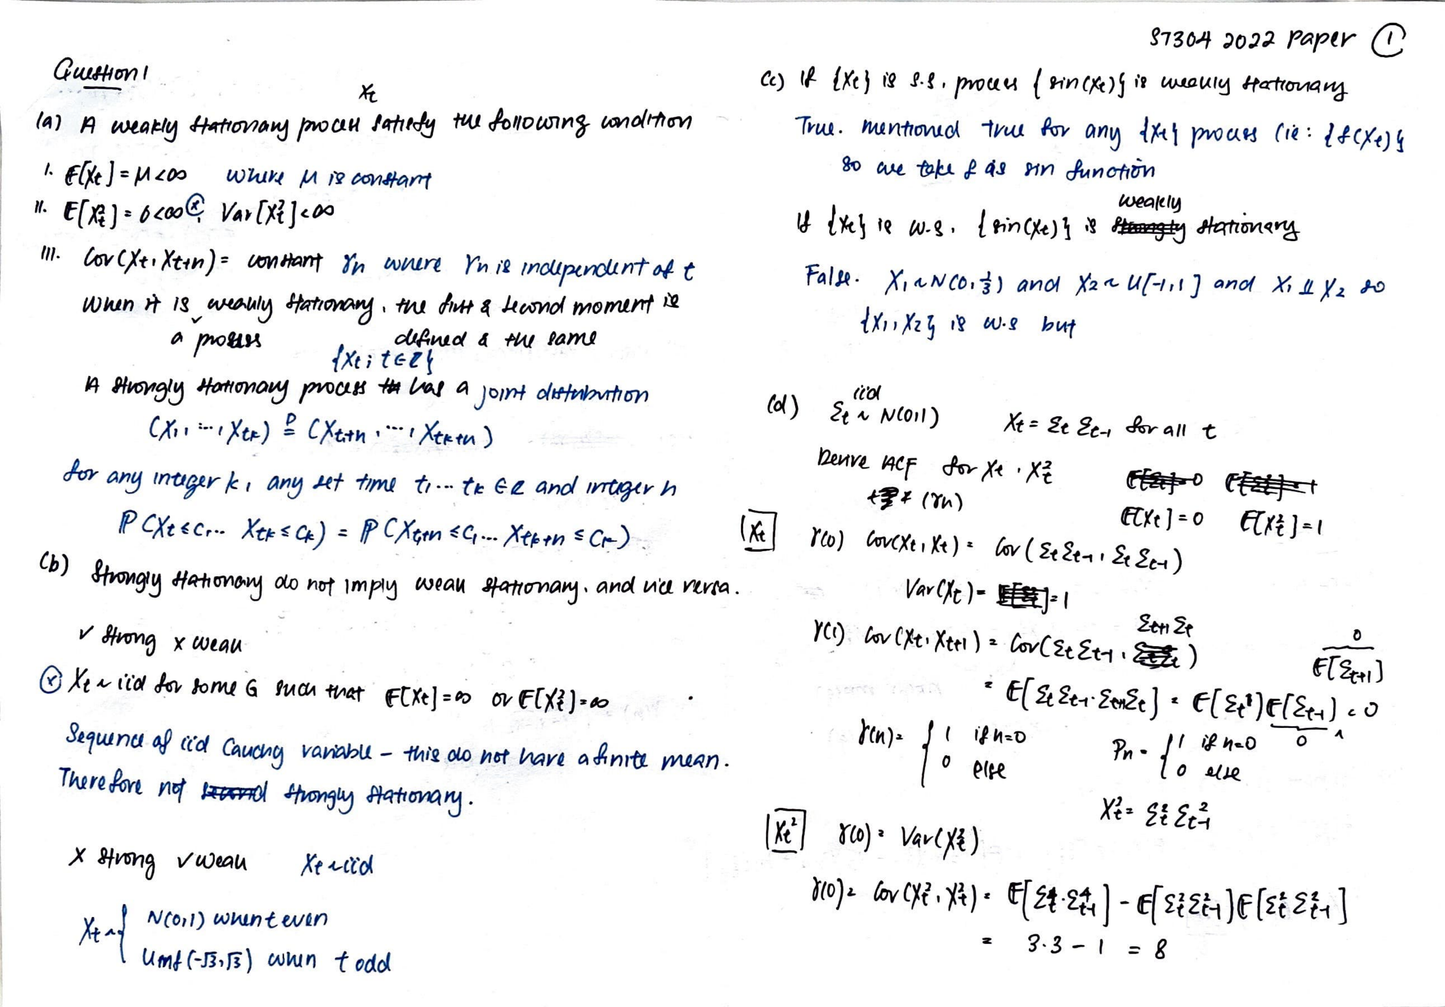 ST304 2022 Paper ①
Question 1
Xt
(a) A weakly stationary process satisfy the following condition
I. E[Xt] = μ<∞ where μ is constant
II. E[Xt²] = σ<∞ Var[Xt²]<∞
III. Cov(Xt, Xt+n) = constant γn where γn is independent of t
When it is weakly stationary, the first & second moment is
a process defined & the same
{Xt; t∈Z}
A strongly stationary process has a joint distribution
(X1, ..., Xtk) D= (Xt+n, ..., Xtk+n)
for any integer k, any set time t1... tk ∈ Z and integer h
P(Xt≤C1... Xtk≤Ck) = P(Xt1+n≤C1... Xtk+n≤Cr)
(b) Strongly stationary do not imply weak stationary, and vice versa.
✓ strong x weak
Xt ~ iid for some G such that E[Xt]=∞ or E[Xt²]=∞
Sequence of iid Cauchy variable – this do not have a finite mean.
Therefore not strongly stationary.
X strong ✓ weak Xt ~ iid
Xt ~ { N(0,1) when t even
Unif(-√3,√3) when t odd
(c) If {Xt} is s.s, process {sin(Xt)} is weakly stationary
True. mentioned true for any {Xt} process (ie: {f(Xt)}
so we take f as sin function
weakly
If {Xt} is w.s, {sin(Xt)} is stationary
False. X1 ~ N(0,1/3) and X2 ~ U[-1,1] and X1 ⫫ X2 so
{X1, X2} is w.s but
iid
(d) Σt ~ N(0,1) Xt = Σt Σt-1 for all t
Derive ACF for Xt, Xt²
(γn)
E[Xt]=0 E[Xt²]=1
Xt γ(0) Cov(Xt, Xt) = Cov(ΣtΣt-1, ΣtΣt-1)
Var(Xt) = 1
Σt+1 Σt
γ(1) Cov(Xt, Xt+1) = Cov(ΣtΣt-1, )
0
E[Σt+1]
= E[ΣtΣt-1·Σt+1Σt] = E[Σt²]E[Σt-1] = 0
0
γ(n) = { 1 if n=0
0 else
Pn = { 1 if n=0
0 else
Xt² = Σt² Σt-1²
Xt² γ(0) = Var(Xt²)
γ(0) = Cov(Xt², Xt²) = E[Σt⁴·Σt-1⁴] - E[Σt²Σt-1²]E[Σt²Σt-1²]
= 3·3 – 1 = 8